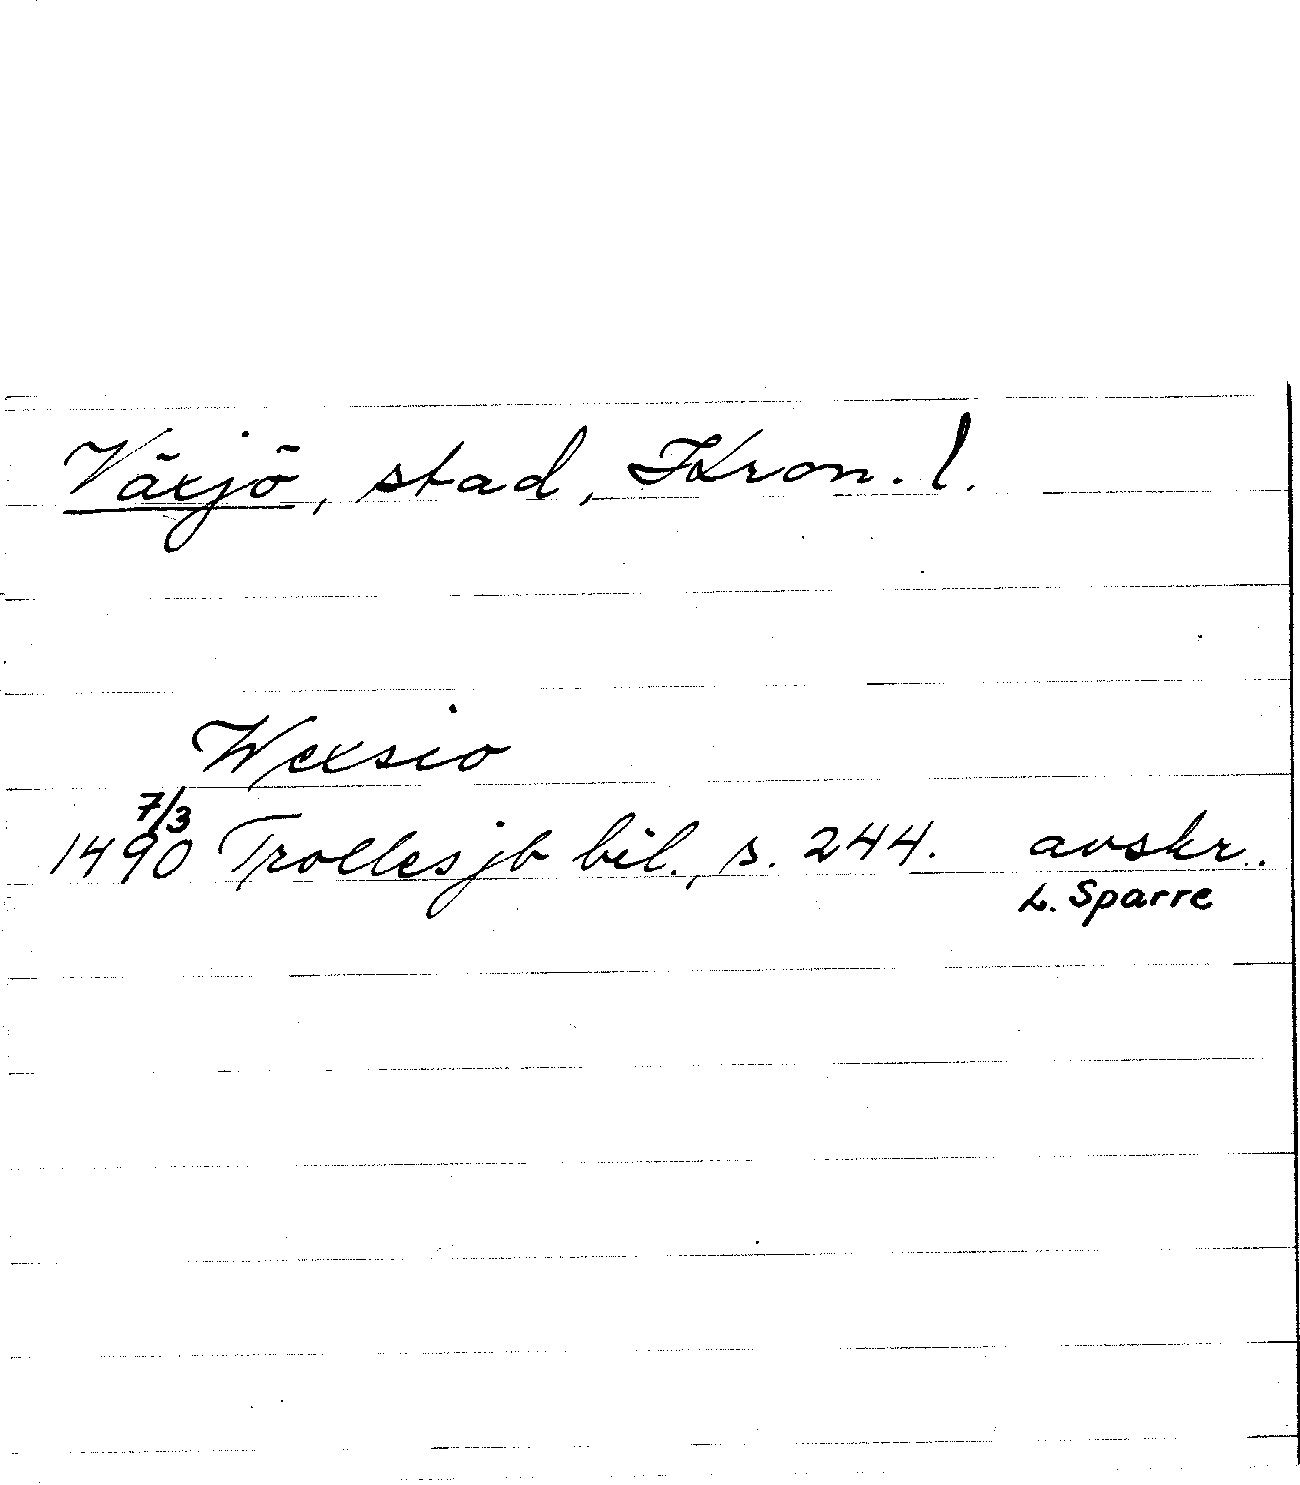 Växjö, stad, Kron. l.
Wexsio
7/3
1490 Trolles jb bil., s. 244. avskr.
L. Sparre